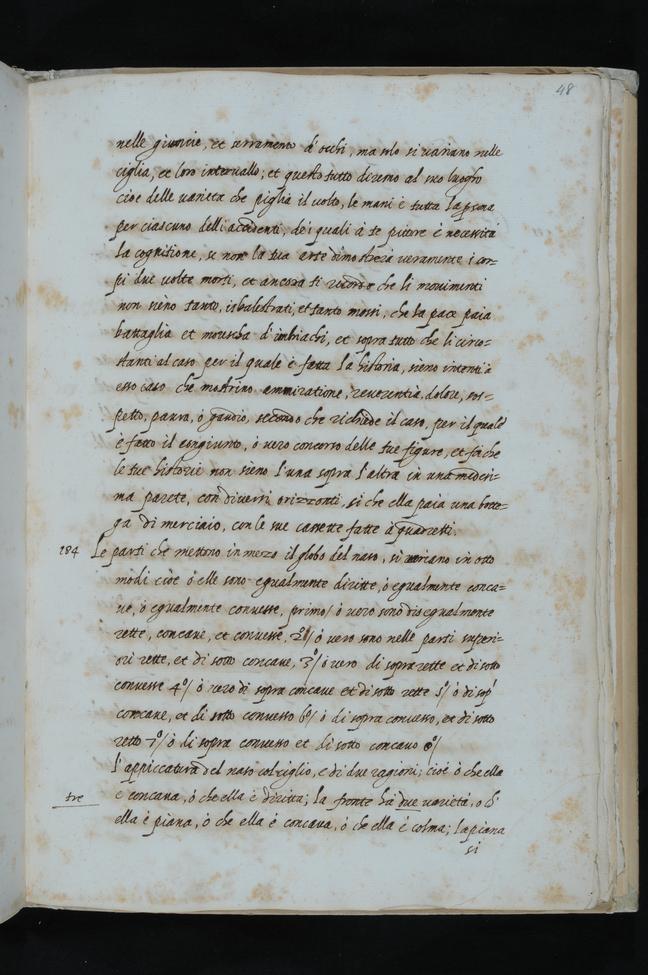 48
nelle giunture, et serramento d'occhi, ma solo si variano nelle
ciglia, et loro intervallo; et questo tutto diremo al suo luogho
cioè delle varietà che piglia il volto, le mani è tutta la psona
per ciascuno delli accidenti, de i quali à te pittore è necessità
la cognitione, se non la tua arte dimostrerà veramente i cor-
pi due volte morti, et ancora ti ricordo che li movimenti
non sieno tanto, isbalestrati, et tanto mossi, che la pace paia
battaglia et morescha d'imbriachi, et sopra tutto che li circo-
stanti al caso per il quale è fatta la historia, sieno intenti à
esso caso che mostrino ammiratione, reverentia, dolore, sos-
petto, paura, ò gaudio, secondo che richiede il caso, per il quale
è fatto il congiunto, ò vero concorso delle tue figure, et fà che
le tue historie non sieno l'una sopra l'altra in una medesi-
ma parete, con diversi orizzonti, si che ella paia una botte-
ga di merciaio, con le sue cassette fatte à quadretti.
184 Le parti che mettono in mezzo il globo del naso, si variano in otto
modi cioè ò elle sono egualmente diritte, ò egualmente conca-
ve, ò egualmente convesse, primo/ ò vero sono disegualmente
rette, concave, et convesse, 2º/ ò vero sono nelle parti superi-
ori rette, et di sotto concave, 3º/ ò vero di sopra rette et di sotto
convesse 4º/ ò vero di sopra concave et di sotto rette 5º/ ò di sop'
concave, et di sotto convesso 6º/ ò di sopra convesso, et di sotto
retto 7º/ ò di sopra convesso et di sotto concavo 8º/
l'appiccatura del naso col ciglio, e di due ragioni; cioè ò che ella
è concava, ò che ella è diritta; la fronte ha due varietà, o ch'
tre
ella è piana, ò che ella è concava, ò che ella è colma; la piana
si